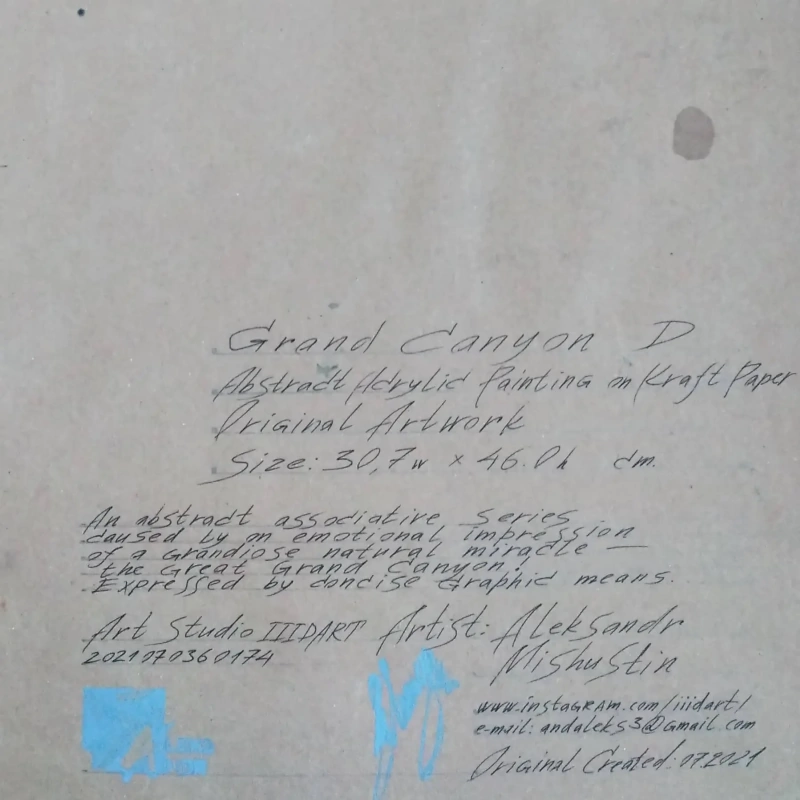 Grand Canyon D
Abstract Acrylic Painting on Kraft Paper
Original Artwork
Size: 30,7w x 46.0h cm.
An abstract associative series
caused by an emotional impression
of a grandiose natural miracle —
the Great Grand Canyon!
Expressed by concise graphic means.
Art Studio IIIDART
2021070360174
Artist: Aleksandr
Mishustin
www.instagram.com/iiidart/
e-mail: andaleks3@gmail.com
Original Created: 07.2021